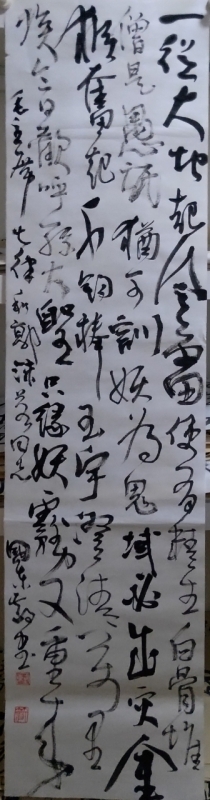 一從大地起风雷便有精生白骨堆
僧是愚氓猶可訓妖為鬼域必成灾金
猴奮起千钧棒玉宇澄清万里
埃今日歡呼孫大聖只緣妖霧又重来
毛主席七律和郭沫若同志
书